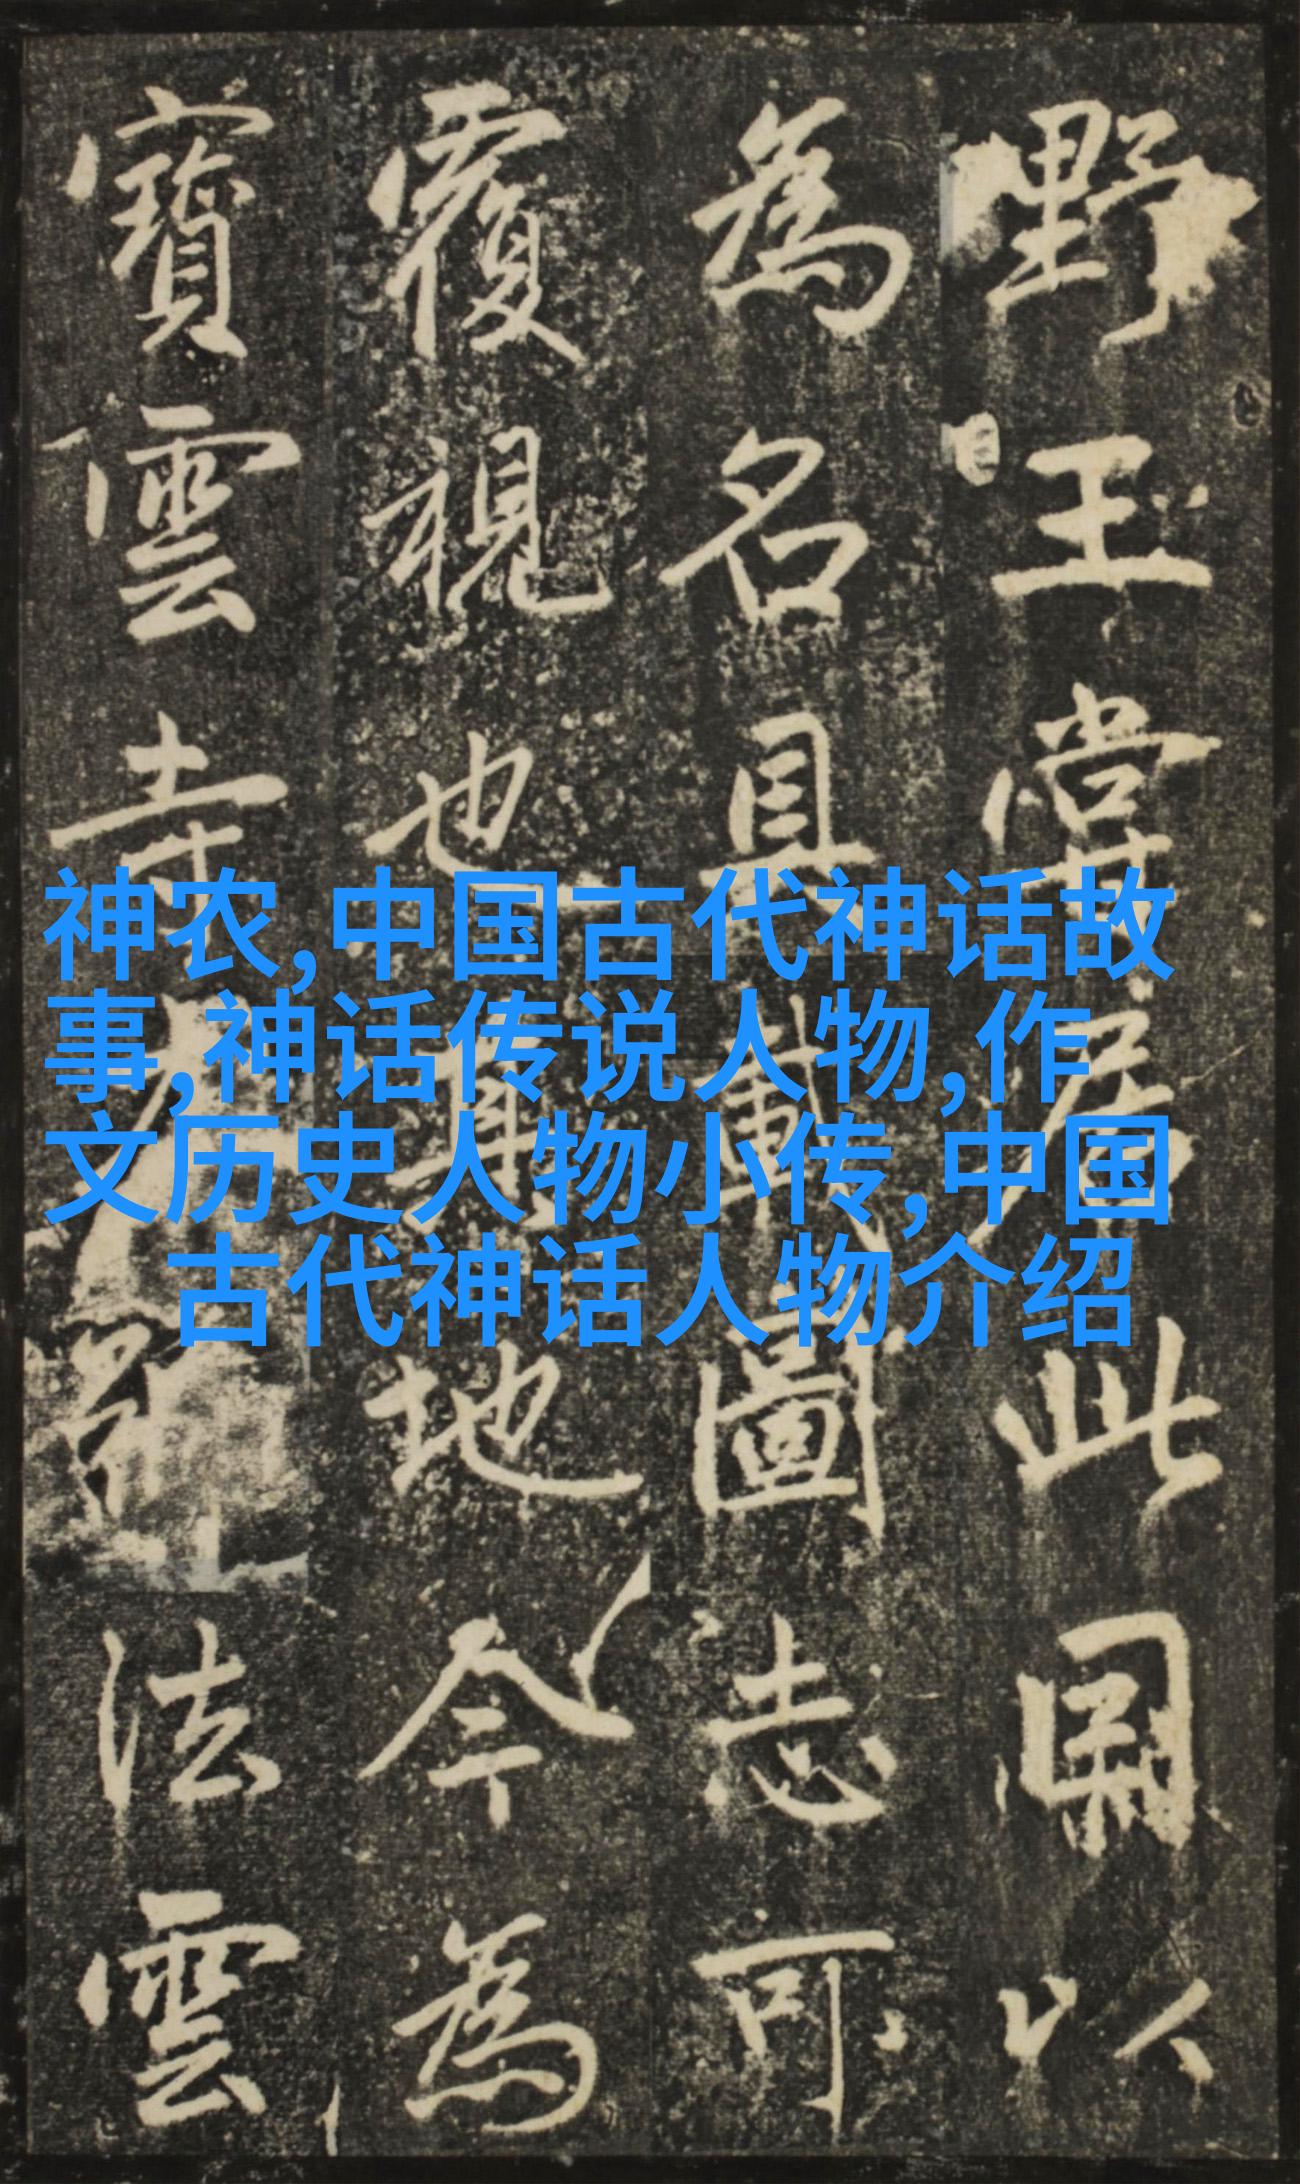 野王嘗居此因以
為名具載圖志可
覆視也其地今為
寶雲寺
法雲
神农,中国古代神话故
事,神话传说人物,作
文历史人物小传,中国
古代神话人物介绍